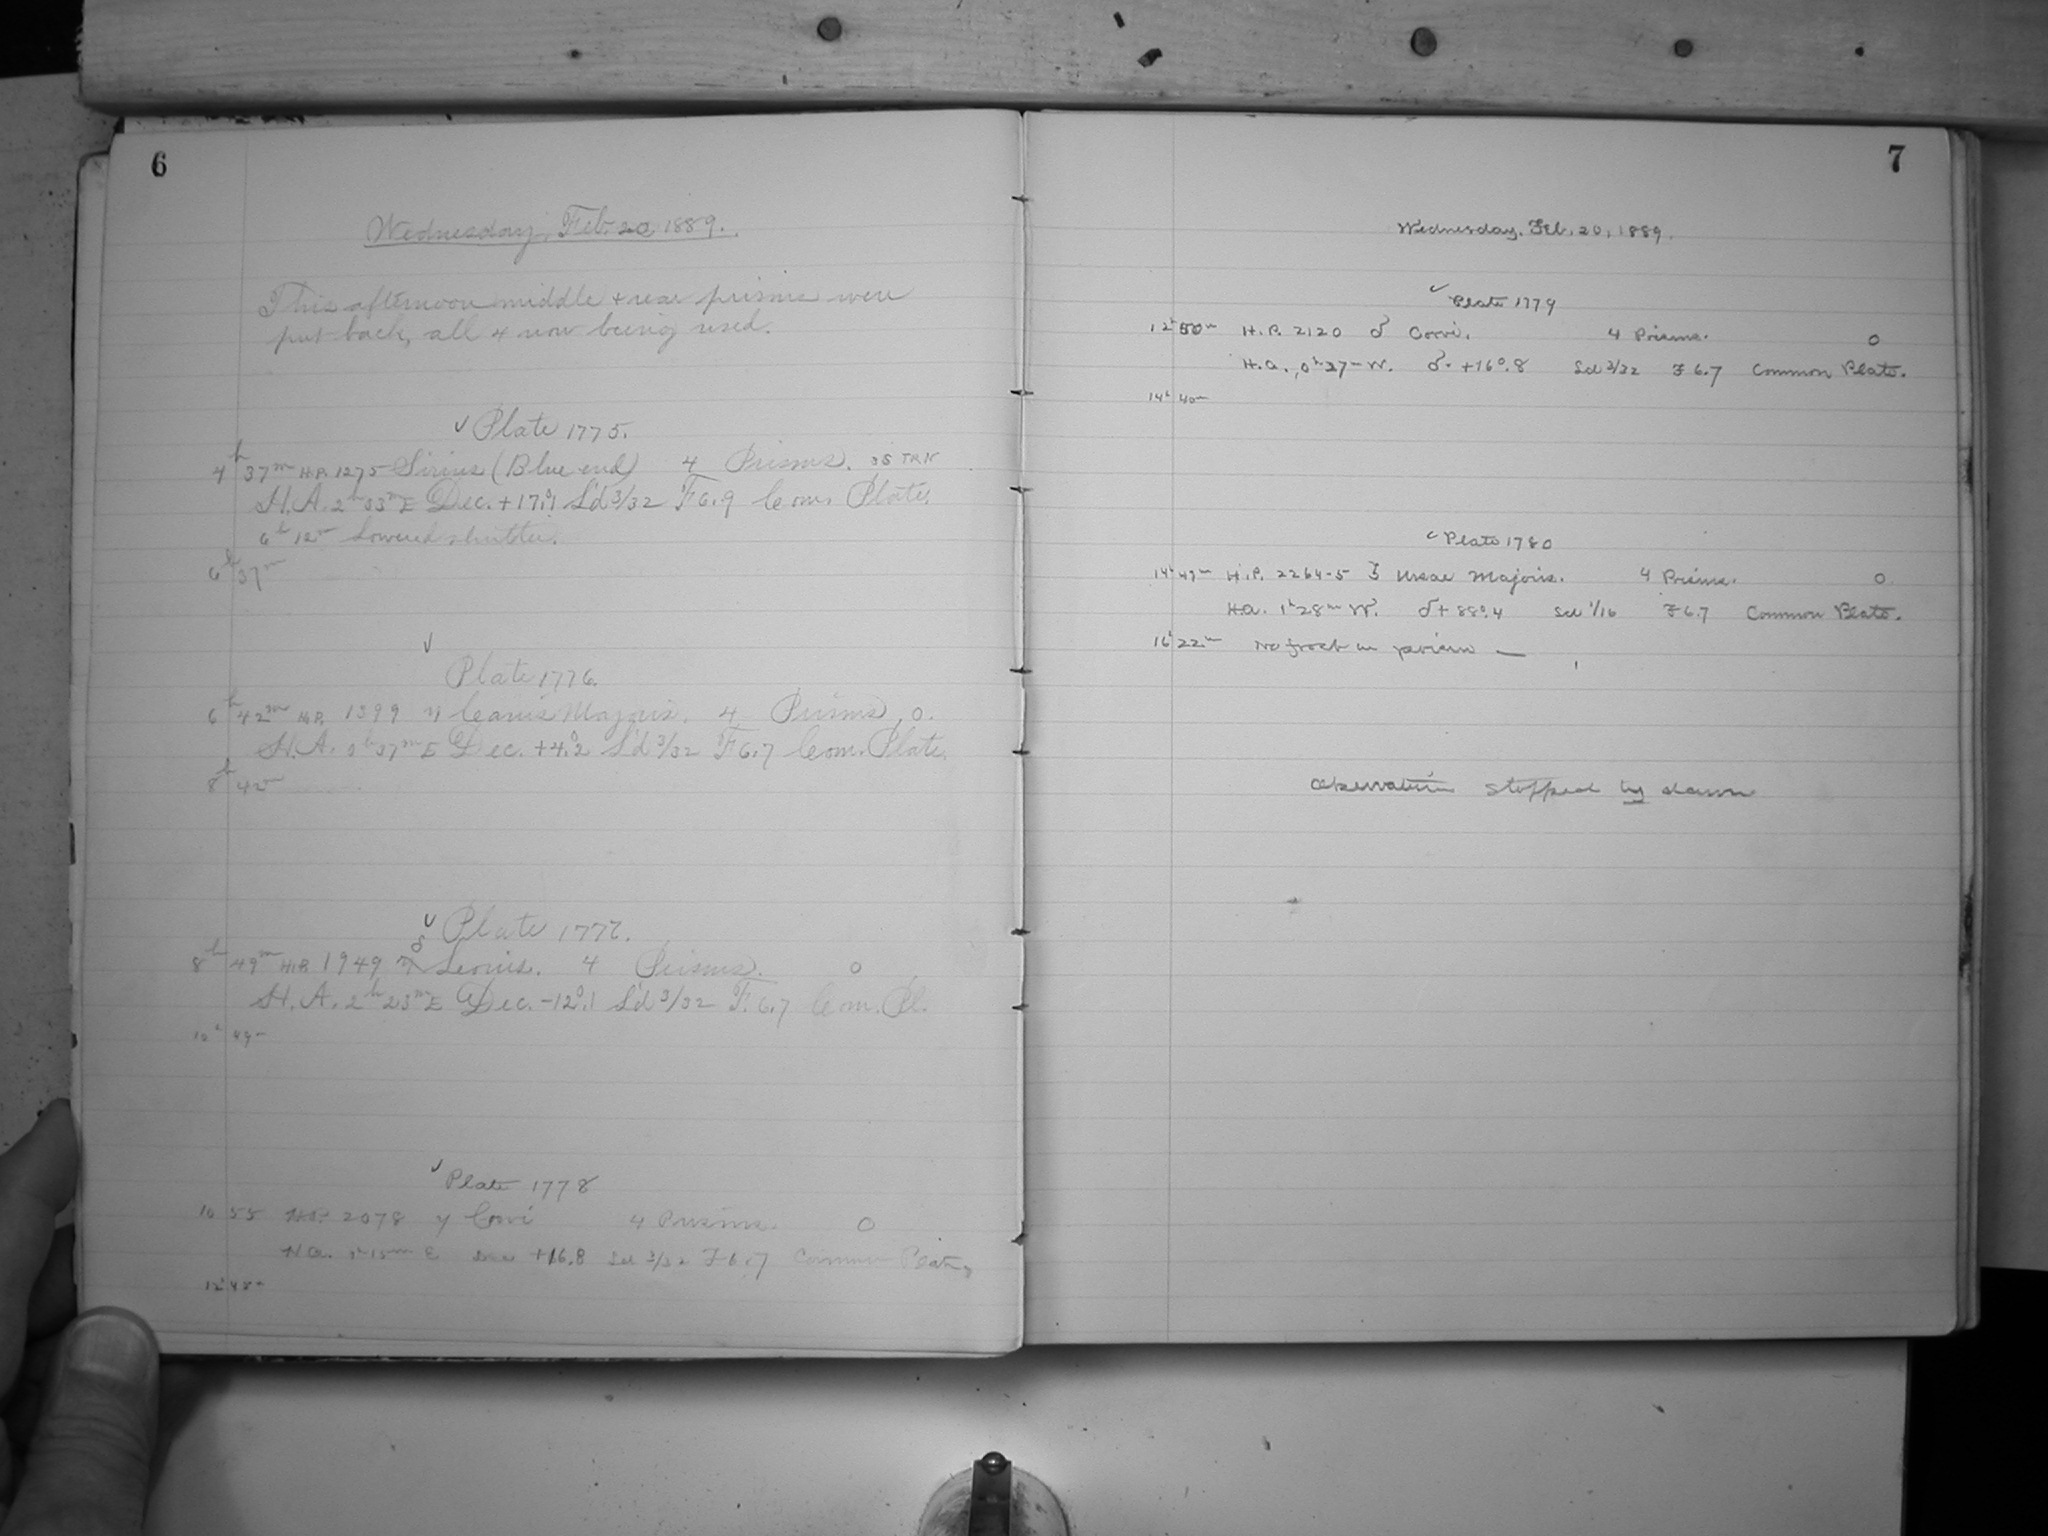 6
Wednesday, Feb. 20 1889.
This afternoon middle + rear prisms were
put back, all 4 now being used.
✓ Plate 1775.
4h 37m H.P. 1275 Sirius (Blue end) 4 Prisms.
H.A. 2h 33m E Dec. +17°.1 S'd 3/32 F 6.9 Com. Plate.
6h 12m Lowered shutter.
6h 37m
✓
Plate 1776.
6h 42m H.P. 1399 η Canis Majoris. 4 Prisms, 0.
H.A. 0h 37m E Dec. +4°.2 S'd 3/32 F 6.7 Com. Plate.
8h 42m
✓ Plate 1777.
δ
8h 49m H.P. 1949 Leonis. 4 Prisms. 0
H.A. 2h 23m E Dec. -12°.1 S'd 3/32 F. 6.7 Com. Pl.
49m
✓ Plate 1778
10 55 H.P. 2078 γ Corvi 4 Prisms. 0
H.A. 1h 15m E Dec +16.8 Sld 3/32 F 6.7 Common Plate,
12h 48m
7
Wednesday. Feb. 20, 1889.
✓ Plate 1779
12h 50m H.P. 2120 δ Corvi. 4 Prisms. 0
H.A. 0h 27m W. δ. +16°.8 Sld 3/32 F 6.7 Common Plate.
14h 40m
✓ Plate 1780
14h 49m H.P. 2264-5 ζ Ursae Majoris. 4 Prisms. 0
H.A. 1h 28m W. δ + 88°.4 Sld 1/16 F 6.7 Common Plate.
16h 22m No frost on prism —
Observations stopped by dawn